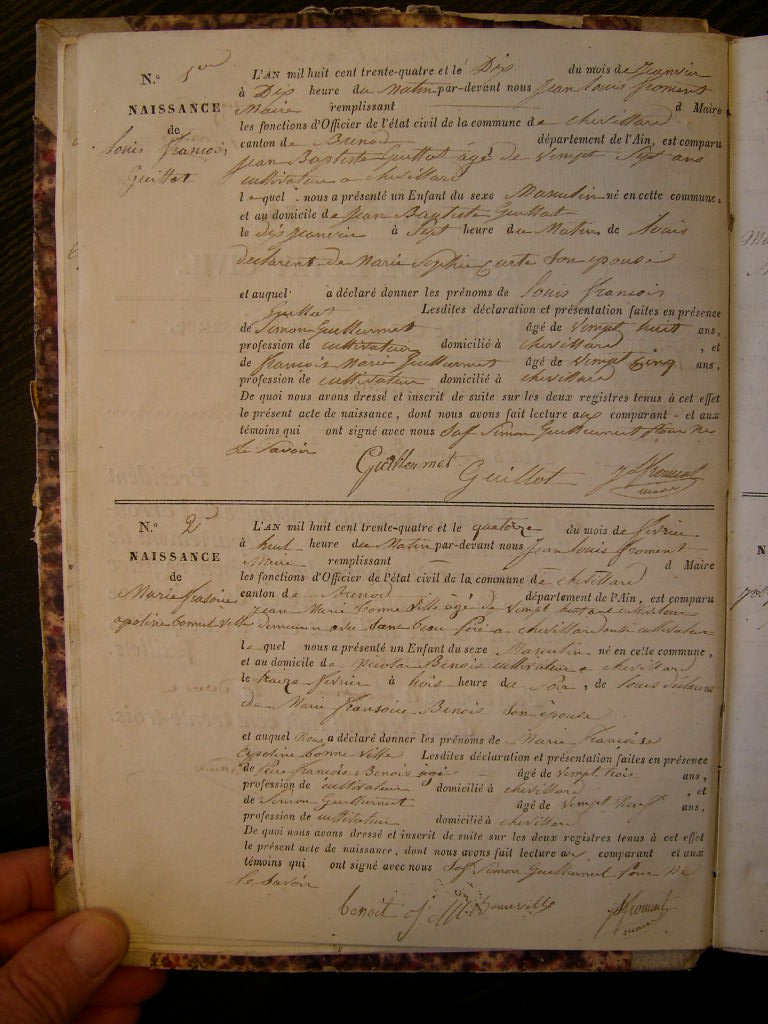 N.° 1er
NAISSANCE
de
Louis François
Guillot
L'AN mil huit cent trente-quatre et le Dix du mois de Janvier
à Dix heure du Matin par-devant nous Jean Louis froment
Maire remplissant d Maire
les fonctions d'Officier de l'état civil de la commune de chevillard
canton de Brenod département de l'Ain, est comparu
Jean Baptiste Guillot âgé de vingt Sept ans
cultivateur a chevillard
lequel nous a présenté un Enfant du sexe Masculin né en cette commune,
et au domicile de Jean Baptiste Guillot
le dix Janvier à Sept heure du Matin de Louis
declarent de Marie Sophie Son epouse
et auquel a déclaré donner les prénoms de louis francois
Guillot Lesdites déclaration et présentation faites en présence
de Simon Guillermet âgé de vingt huit ans,
profession de cultivateur domicilié à chevillard , et
de francois Marie Guillermet âgé de vingt cinq ans,
profession de cultivateur domicilié à chevillard
De quoi nous avons dressé et inscrit de suite sur les deux registres tenus à cet effet
le présent acte de naissance, dont nous avons fait lecture aux comparant - et aux
témoins qui ont signé avec nous Sof Simon Guillermet pour ne
le Savoir
Guillermet Guillot froment
maire
N.° 2
NAISSANCE
de
Marie
apoline bonne ville
L'AN mil huit cent trente-quatre et le quatorze du mois de fevrier
à huit heure du Matin par-devant nous Jean Louis froment
Maire remplissant d Maire
les fonctions d'Officier de l'état civil de la commune de chevillard
canton de Brenod département de l'Ain, est comparu
Jean Marie bonne ville âgé de vingt huit ans cultivateur
beau a chevillard cultivateur
le quel nous a présenté un Enfant du sexe Masculin né en cette commune,
et au domicile de Nicolas Benois cultivateur a chevillard
le traize fevrier à trois heure du Soir, de
de Marie Benois Son épouse
et auquel Nous a déclaré donner les prénoms de Marie francoise
bonne ville Lesdites déclaration et présentation faites en présence
de francois Benois âgé de vingt trois ans,
profession de cultivateur domicilié à chevillard , et
de Simon Guillermet âgé de vingt ans,
profession de cultivateur domicilié à chevillard
De quoi nous avons dressé et inscrit de suite sur les deux registres tenus à cet effet
le présent acte de naissance, dont nous avons fait lecture aux comparant et aux
témoins qui ont signé avec nous Sof Simon Guillermet pour ne
le Savoir
benoit Bonneville froment
maire